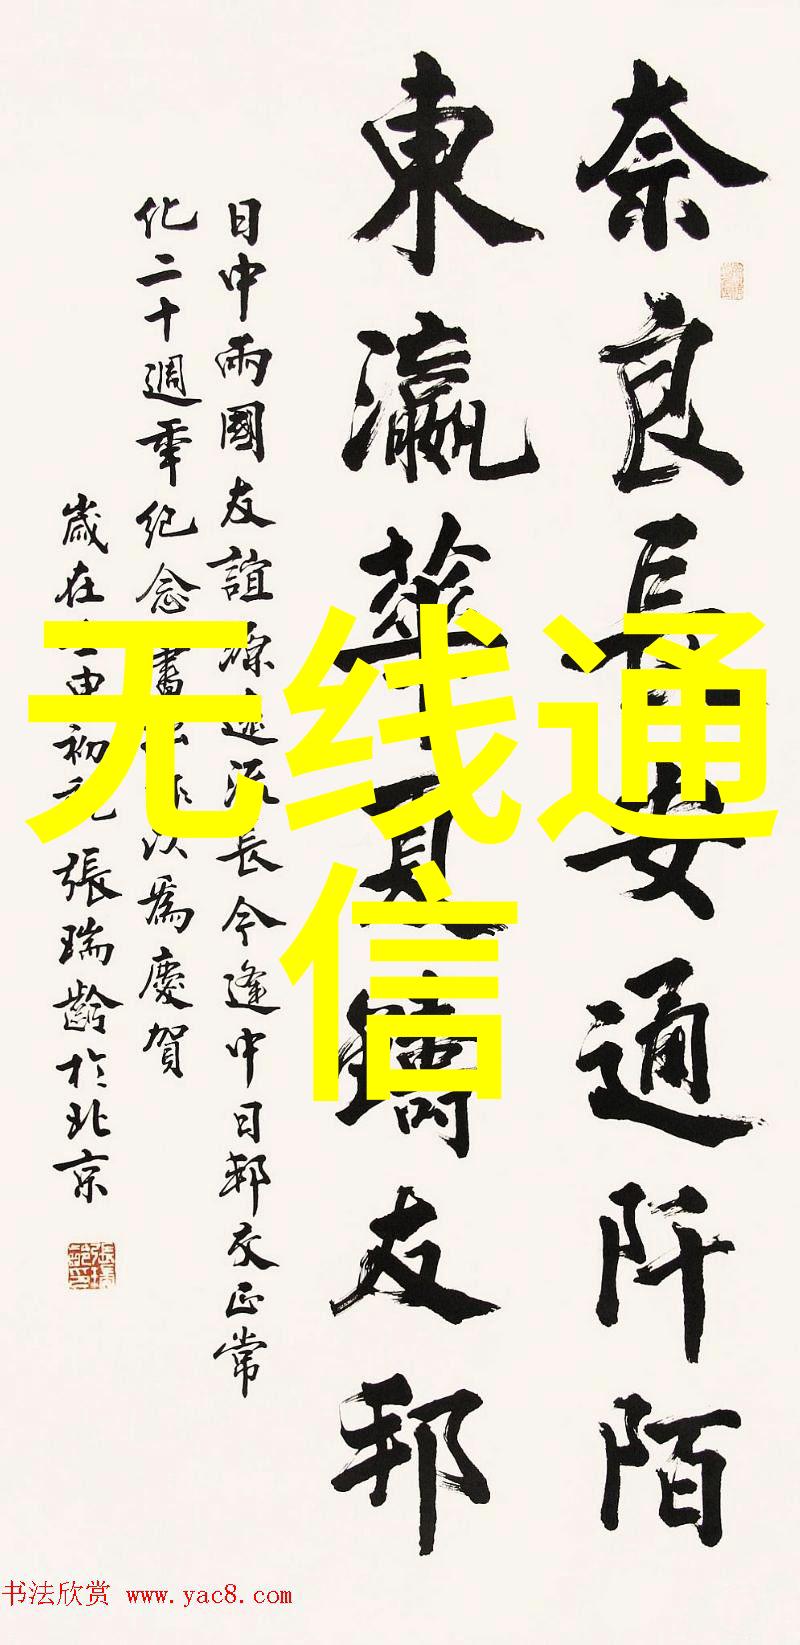 奈良長安通阡陌
東瀛華夏鑄友邦
日中兩國友誼源遠流長今逢中日邦交正常
化二十週年紀念書此以為慶賀
歲在壬申初元張瑞齡於北京
无线通
信
书法欣赏 www.yac8.com